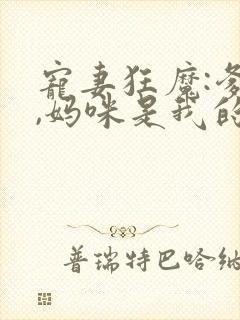 寵妻狂魔:爹
,媽咪是我的
普瑞特巴哈納